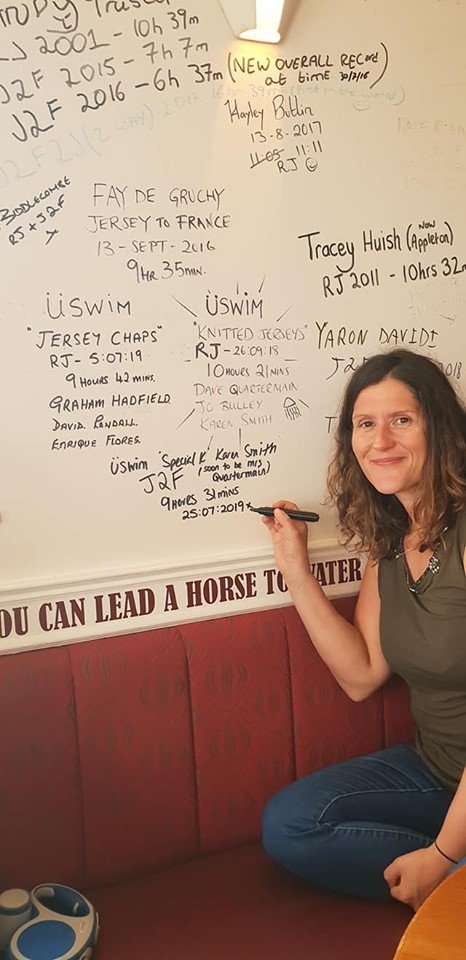 J 2001 - 10h 39m
J2F 2015 - 7h 7m
J2F 2016 - 6h 37m (NEW OVERALL RECORD
at time 30/7/16)
Hayley Butlin
13-8-2017
11:05 11:11
RJ
BIDDLECOMBE
RJ + J2F
x
FAY DE GRUCHY
JERSEY TO FRANCE
13 - SEPT - 2016
9HR 35MIN.
Tracey Huish (now
Appleton)
RJ 2011 - 10hrs 32m
ÜSWIM
"JERSEY CHAPS"
RJ - 5:07:19
9 HOURS 42 MINS.
GRAHAM HADFIELD.
DAVID. RANDALL.
ENRIQUE FLORES.
ÜSWIM
"KNITTED JERSEYS"
RJ - 26:09:18
10 HOURS 21 MINS
DAVE QUARTERMAIN
JO BULLEY
KAREN SMITH
YARON DAVIDI
J2F
2018
üswim "Special K" Karen Smith
(soon to be mrs
Quartermain)
J2F
9HOURS 31mins
25:07:2019x
OU CAN LEAD A HORSE TO WATER